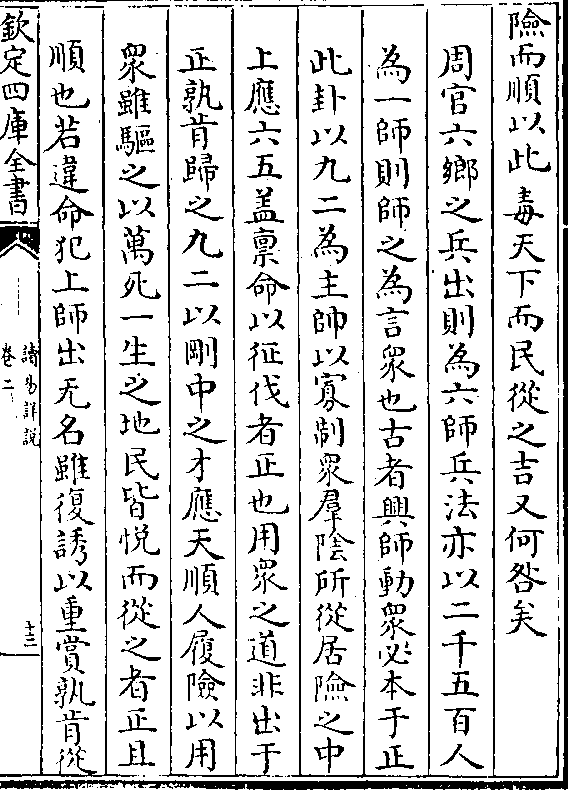 險而順以此毒天下而民從之吉又何咎矣
周官六鄉之兵出則為六師兵法亦以二千五百人
為一師則師之為言衆也古者興師動衆必本于正
此卦以九二為主帥以寡制衆羣陰所從居險之中
上應六五盖禀命以征伐者正也用衆之道非出于
正孰肯歸之九二以剛中之才應天順人履險以用
衆雖驅之以萬死一生之地民皆悦而從之者正且
順也若違命犯上師出无名雖復誘以重賞孰肯從
欽定四庫全書
讀易詳說
卷二
十三